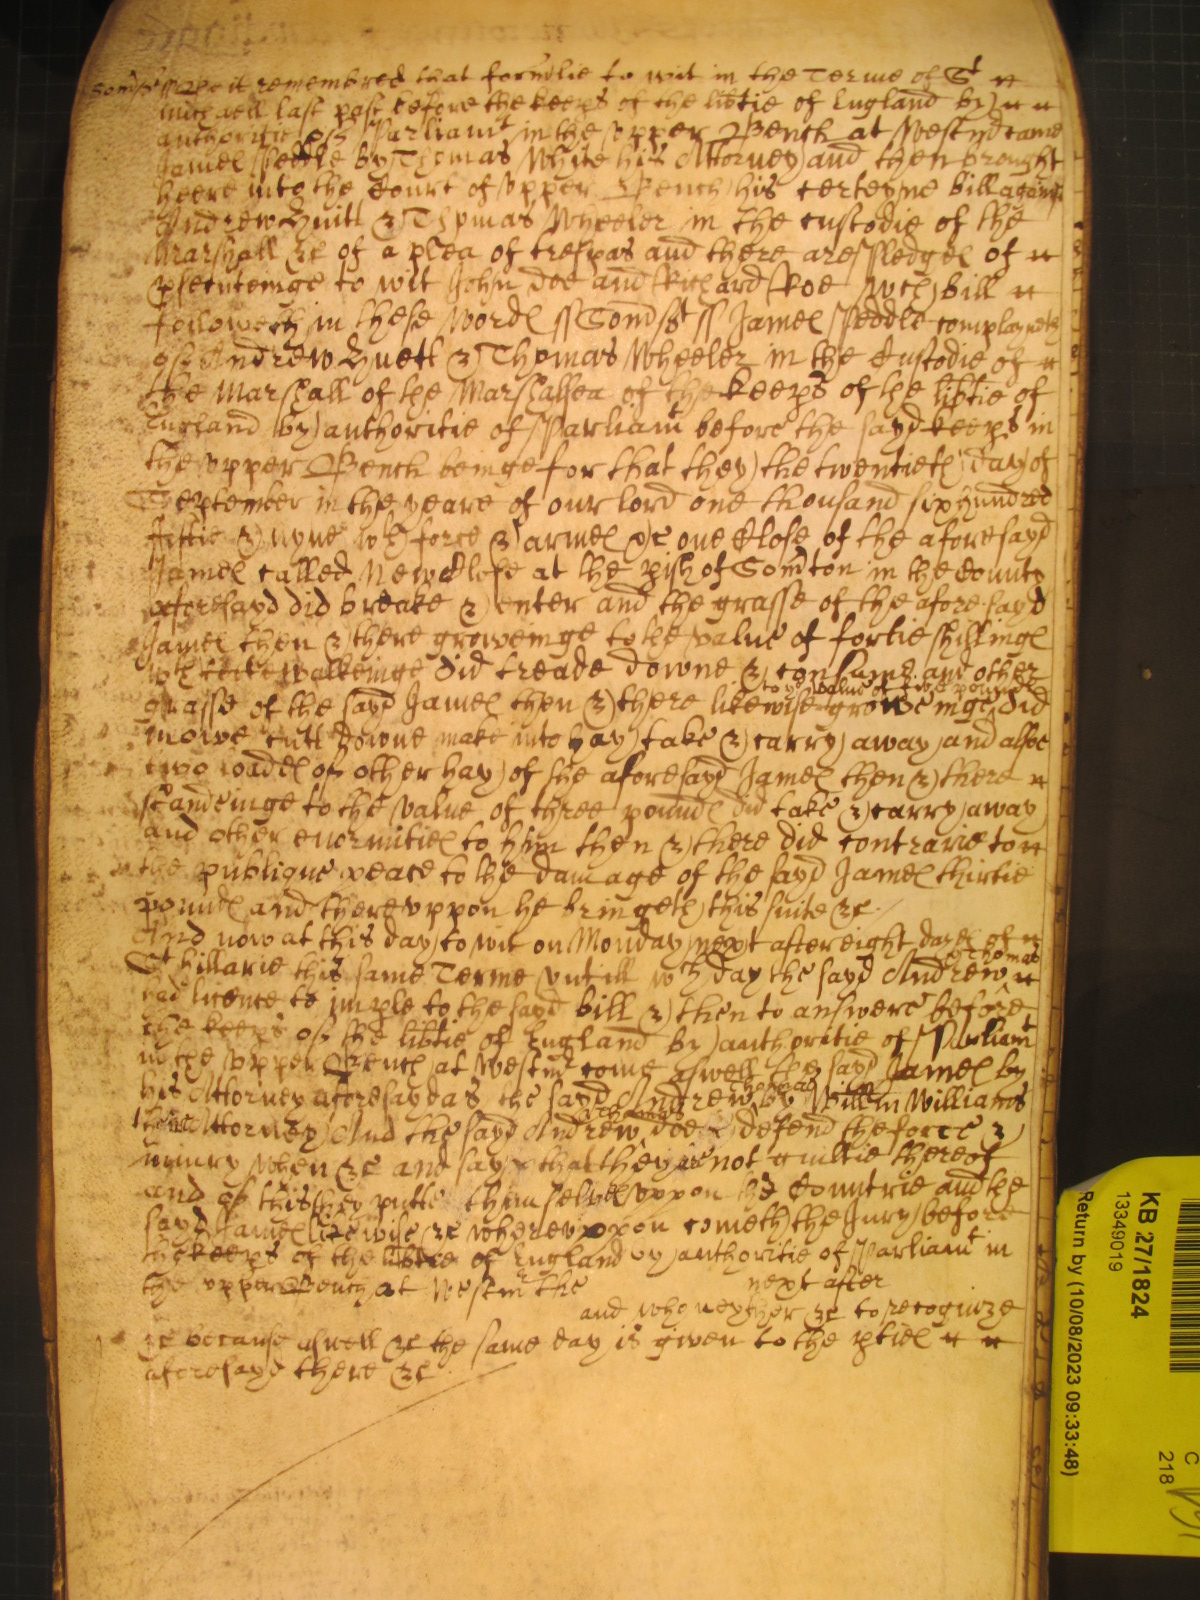 Somst ss Be it remembred that formlie to wit in the Terme of St
Michaell last past before the keeps of the libtie of England by
authoritie of Parliamt in the upper Bench at Westmr came
James Peddle by Thomas White his Attorney and then brought
heere into the Court of upper Bench his certeyne bill against
Andrew Huitt & Thomas Wheeler in the custodie of the
Marshall &c of a plea of trespas and there are Pledges of
psecuteinge to wit John Doe and Richard Roe wch bill
followeth in these words ss Somst ss James Peddle complayneth
of Andrew Huett & Thomas Wheeler in the Custodie of
the Marshall of the Marshalsea of the keeps of the libtie of
England by authoritie of Parliamt before the sayd keeps in
the upper Bench beinge for that they the twentieth day of
September in the yeare of our lord one thousand six hundred
fiftie & nyne wth force & armes &c one Close of the aforesayd
James called New Close at the pish of Somton in the County
aforesayd did breake & enter and the grasse of the aforesayd
James then & there groweinge to the value of fortie shillings
wth feete walkeinge did treade downe & consume and other
grasse of the sayd James then & there likewise groweinge to ye value of two pounds did
mowe cutt downe make into hay take & carry away and alsoe
two loades of other hay of the aforesayd James then & there
standeinge to the value of three pounds did take & carry away
and other enormities to him then & there did contrarie to
the publique peace to the damage of the sayd James thirtie
pounds and thereuppon he bringeth this suite &c
And now at this day to wit on Monday next after eight dayes of
St Hillarie this same Terme untill wch day the sayd Andrew & Thomas
had licence to imple to the sayd bill & then to answere before
the keeps of the libtie of England by authoritie of Parliamt
in the upper Bench at Westmr come aswell the sayd James by
his Attorney aforesayd as the sayd Andrew & Thomas by Willm Williams
their Attorney And the sayd Andrew & Thomas doe defend the force &
iniury when &c and say that they are not guiltie thereof
and of this they putt themselves uppon the Countrie and the
sayd James likewise &c whereuppon cometh the Jury before
the keeps of the libtie of England by authoritie of Parliamt in
the upper Bench at Westmr the next after
and who neyther &c to recognize
&c because aswell &c the same day is given to the pties
aforesayd there &c
KB 27/1824
13349019
Return by (10/08/2023 09:33:48)
C
218